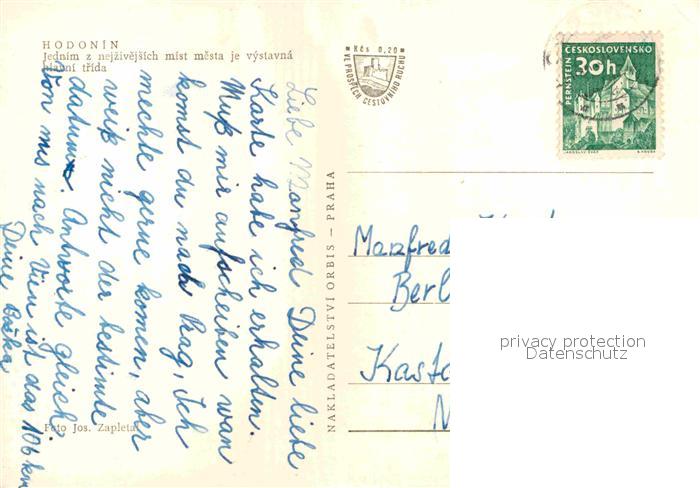 HODONÍN
Jedním z nejživějších míst města je výstavná
hlavní třída
Kčs 0,20
VE PROSPĚCH CESTOVNÍHO RUCHU
ČESKOSLOVENSKO
30h
PERNŠTEJN
Liebe Manfred Deine liebe
Karte habe ich erhalten.
Muß mir aufscheiben wan
komst du nach Prag, Ich
mechte gerne komen, aber
weiß nicht der bestimte
datum. Antworte gleich.
Von mus nach Vien ist das 106 km
Deine
NAKLADATELSTVÍ ORBIS — PRAHA
Manfred
Berl
Kast
Foto Jos. Zapletal
privacy protection
Datenschutz